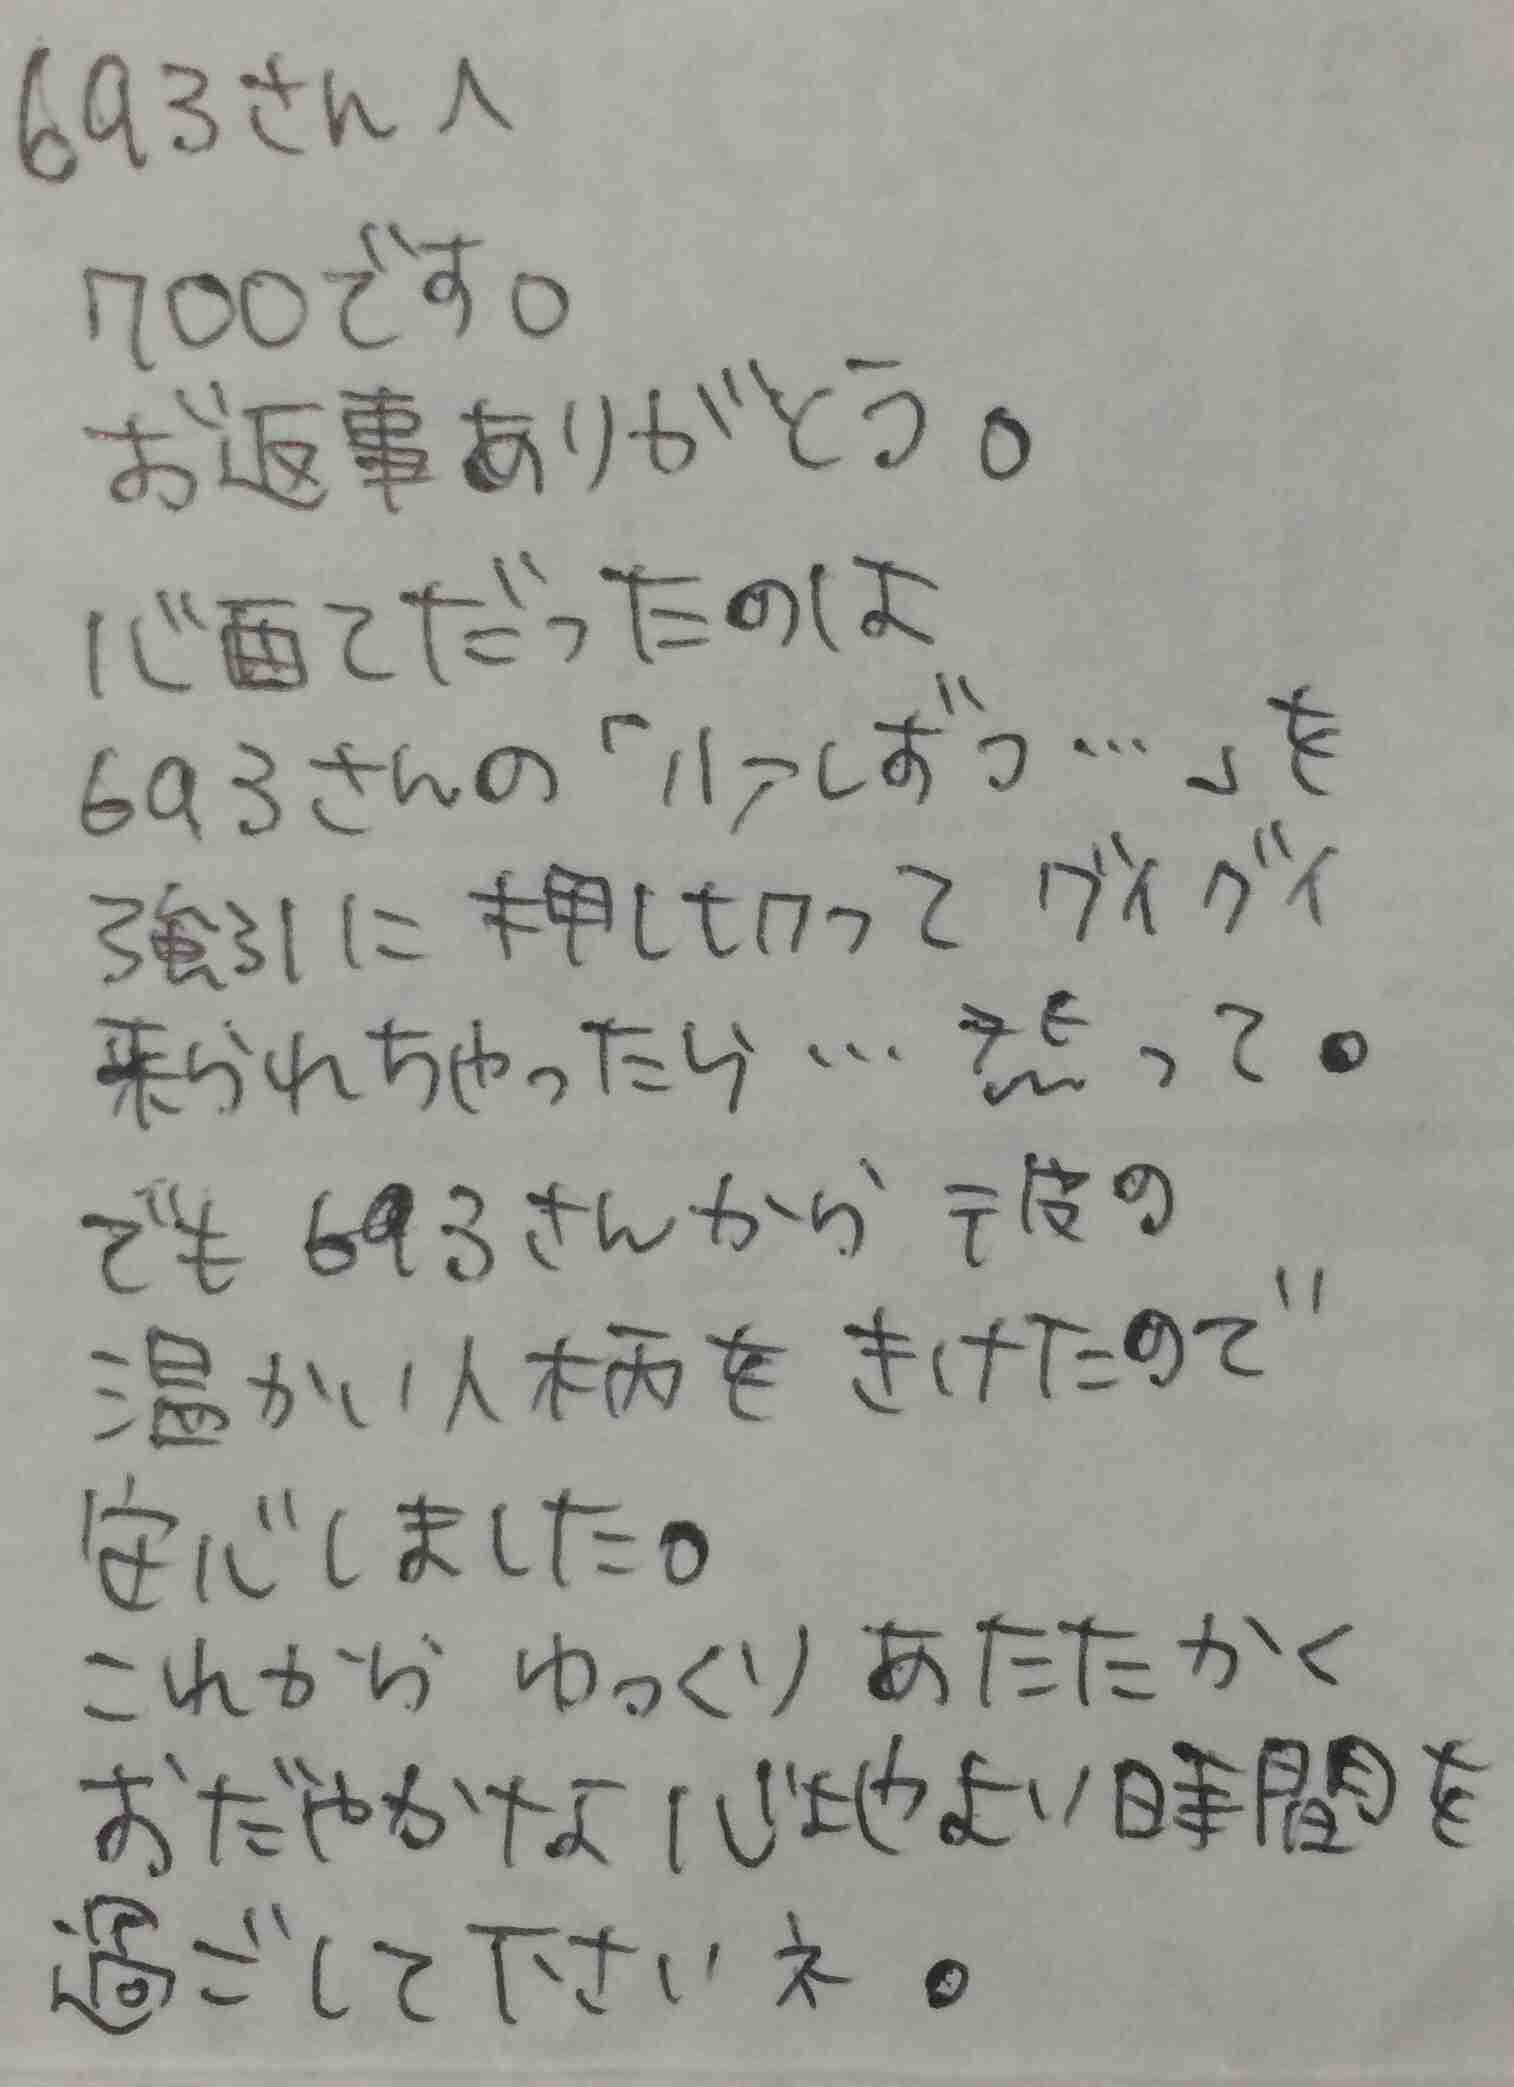 693さんへ
700です。
お返事ありがとう。
心配てだったのは
693さんの「少しずつ…」を
強引に押し切ってグイグイ
来られちゃったら…恐って。
でも693さんから彼の
温かい人柄をきけたので
安心しました。
これからゆっくりあたたかく
おだやかな心地よい時間を
過ごして下さいネ。